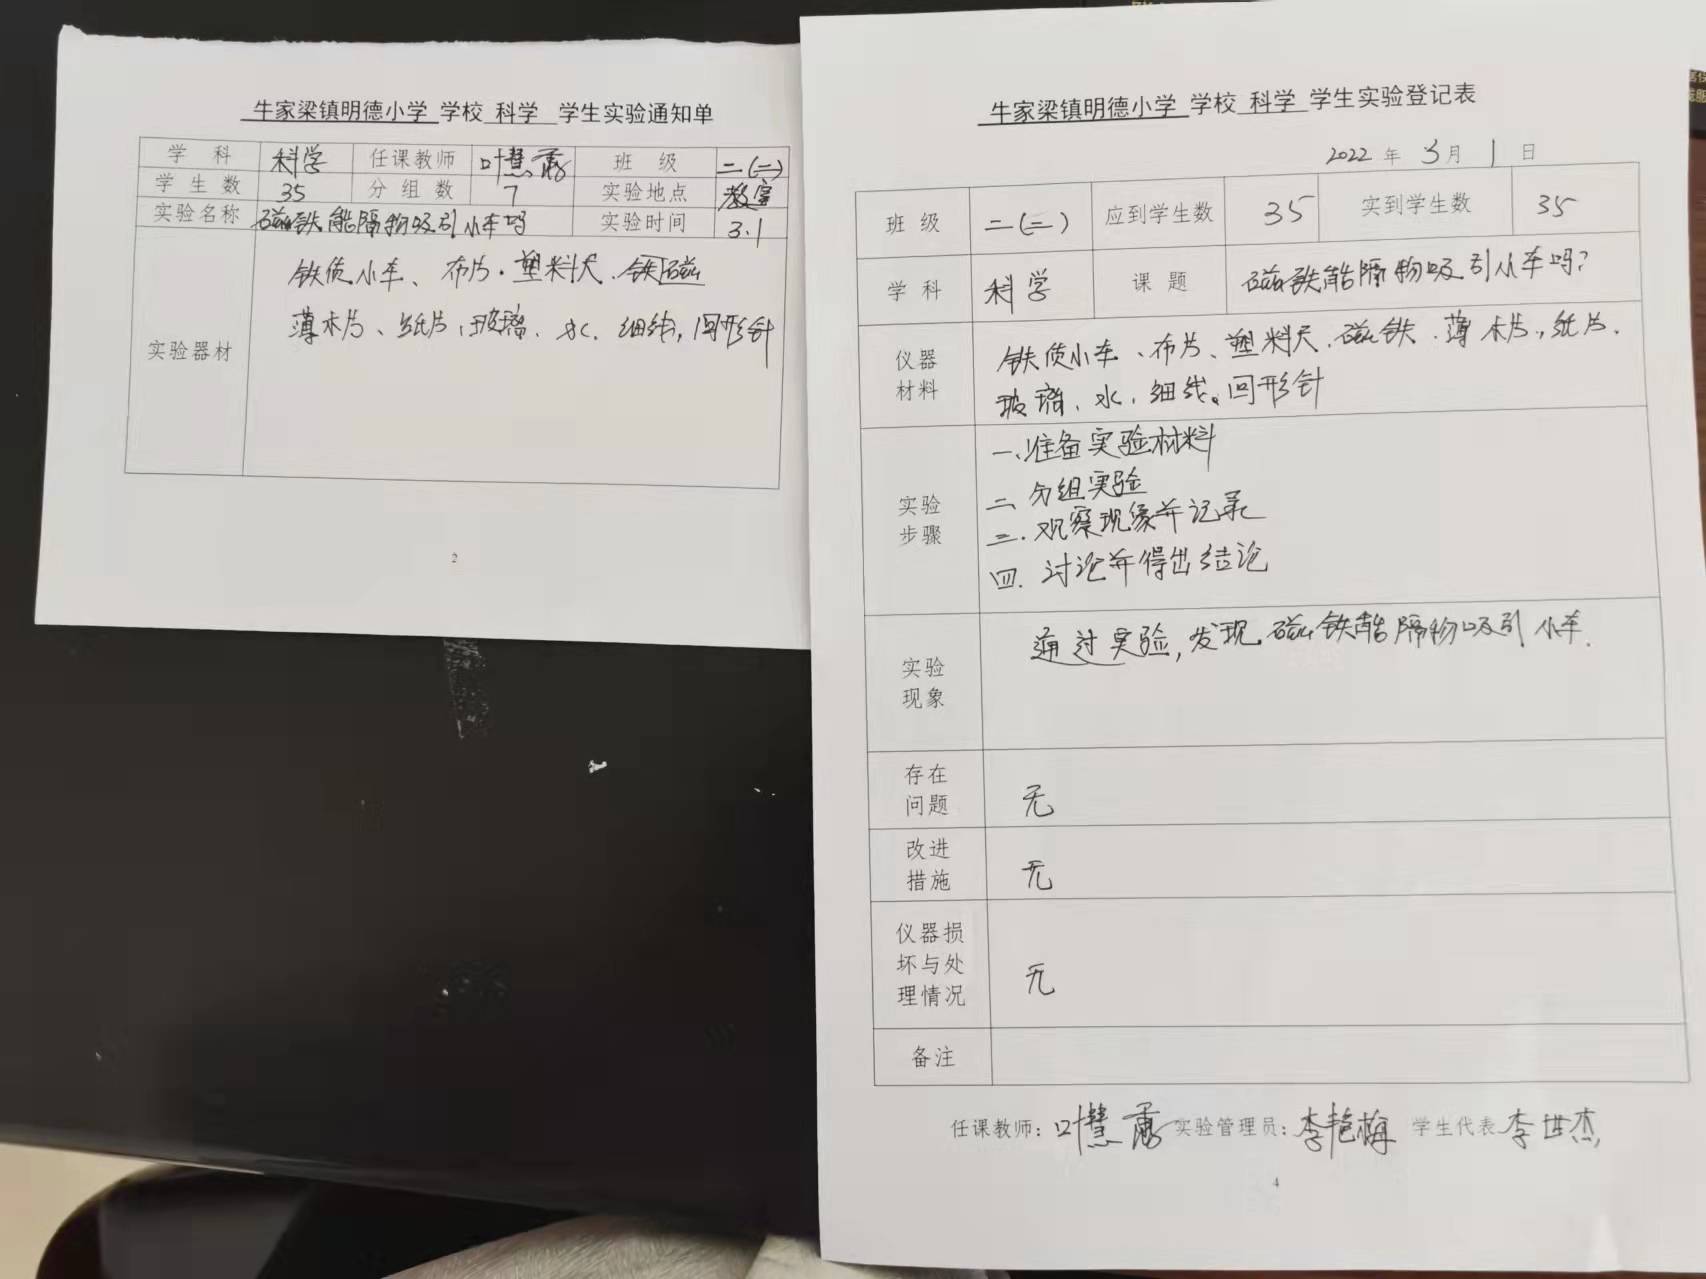 牛家梁镇明德小学 学校 科学 学生实验通知单
学科 科学 任课教师 叶慧 班级 二(二)
学生数 35 分组数 7 实验地点 教室
实验名称 磁铁能隔物吸引小车吗 实验时间 3.1
实验器材
铁质小车、布片.塑料尺.铁磁
薄木片、纸片,玻璃.水.细线,回形针
2
牛家梁镇明德小学 学校 科学 学生实验登记表
2022 年 3月 1 日
班级 二(二) 应到学生数 35 实到学生数 35
学科 科学 课题 磁铁能隔物吸引小车吗?
仪器
材料
铁质小车、布片、塑料尺.磁铁.薄木片,纸片.
玻璃、水,细线。回形针
实验
步骤
一、准备实验材料
二 分组实验
三.观察现象并记录
四.讨论并得出结论
实验
现象
通过实验,发现磁铁能隔物吸引小车.
存在
问题
无
改进
措施
无
仪器损
坏与处
理情况
无
备注
任课教师:叶慧 实验管理员:李艳梅 学生代表 李世杰
4